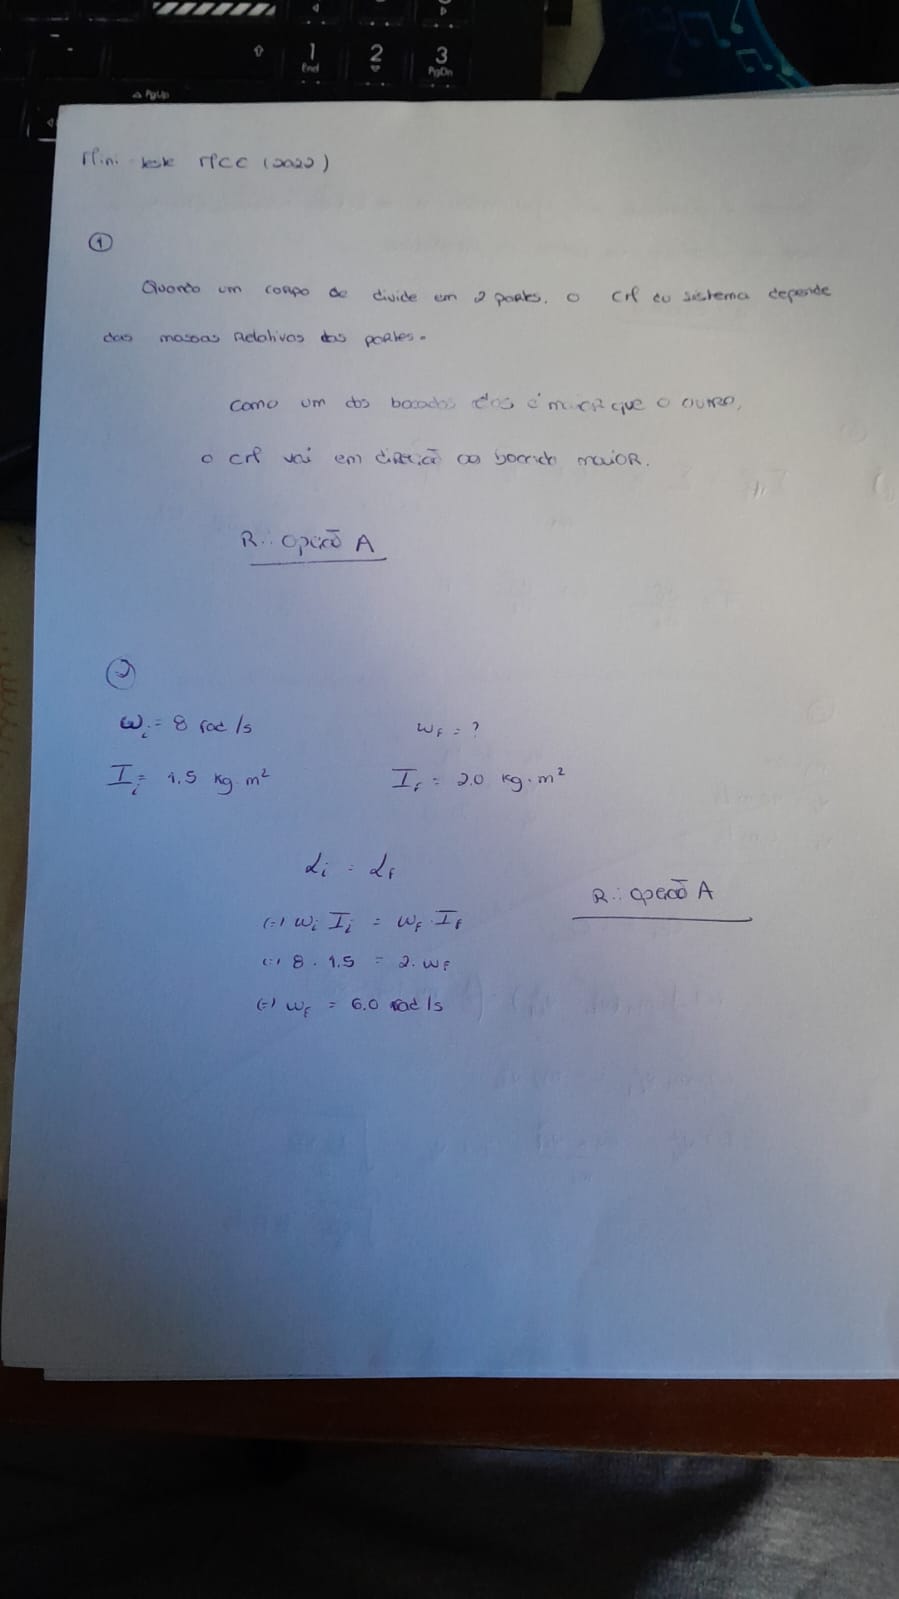 1
End
2
3
PgDn
PgUp
Mini teste MCC (2022)
1
Quando um corpo se divide em 2 partes, o CM do sistema depende
das massas Relativas das partes.
como um dos bocados é maior que o outro,
o CM vai em direção ao bocado maior.
R.: opção A
2
ωi = 8 rad/s
ωf = ?
Ii = 1.5 kg m²
If = 2.0 kg.m²
Li = Lf
(=) ωi Ii = ωf . If
(=) 8 . 1.5 = 2. ωf
(=) ωf = 6.0 rad/s
R.: opção A